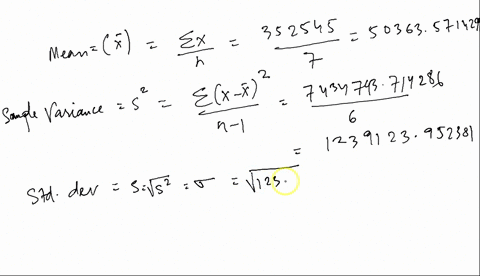 Mean = (x̄) = Σx / n = 352545 / 7 = 50363.571429
Sample Variance = s² = Σ(x-x̄)² / n-1 = 7434743.714286 / 6
= 1239123.952381
Std. dev = s = √s² = σ = √123.